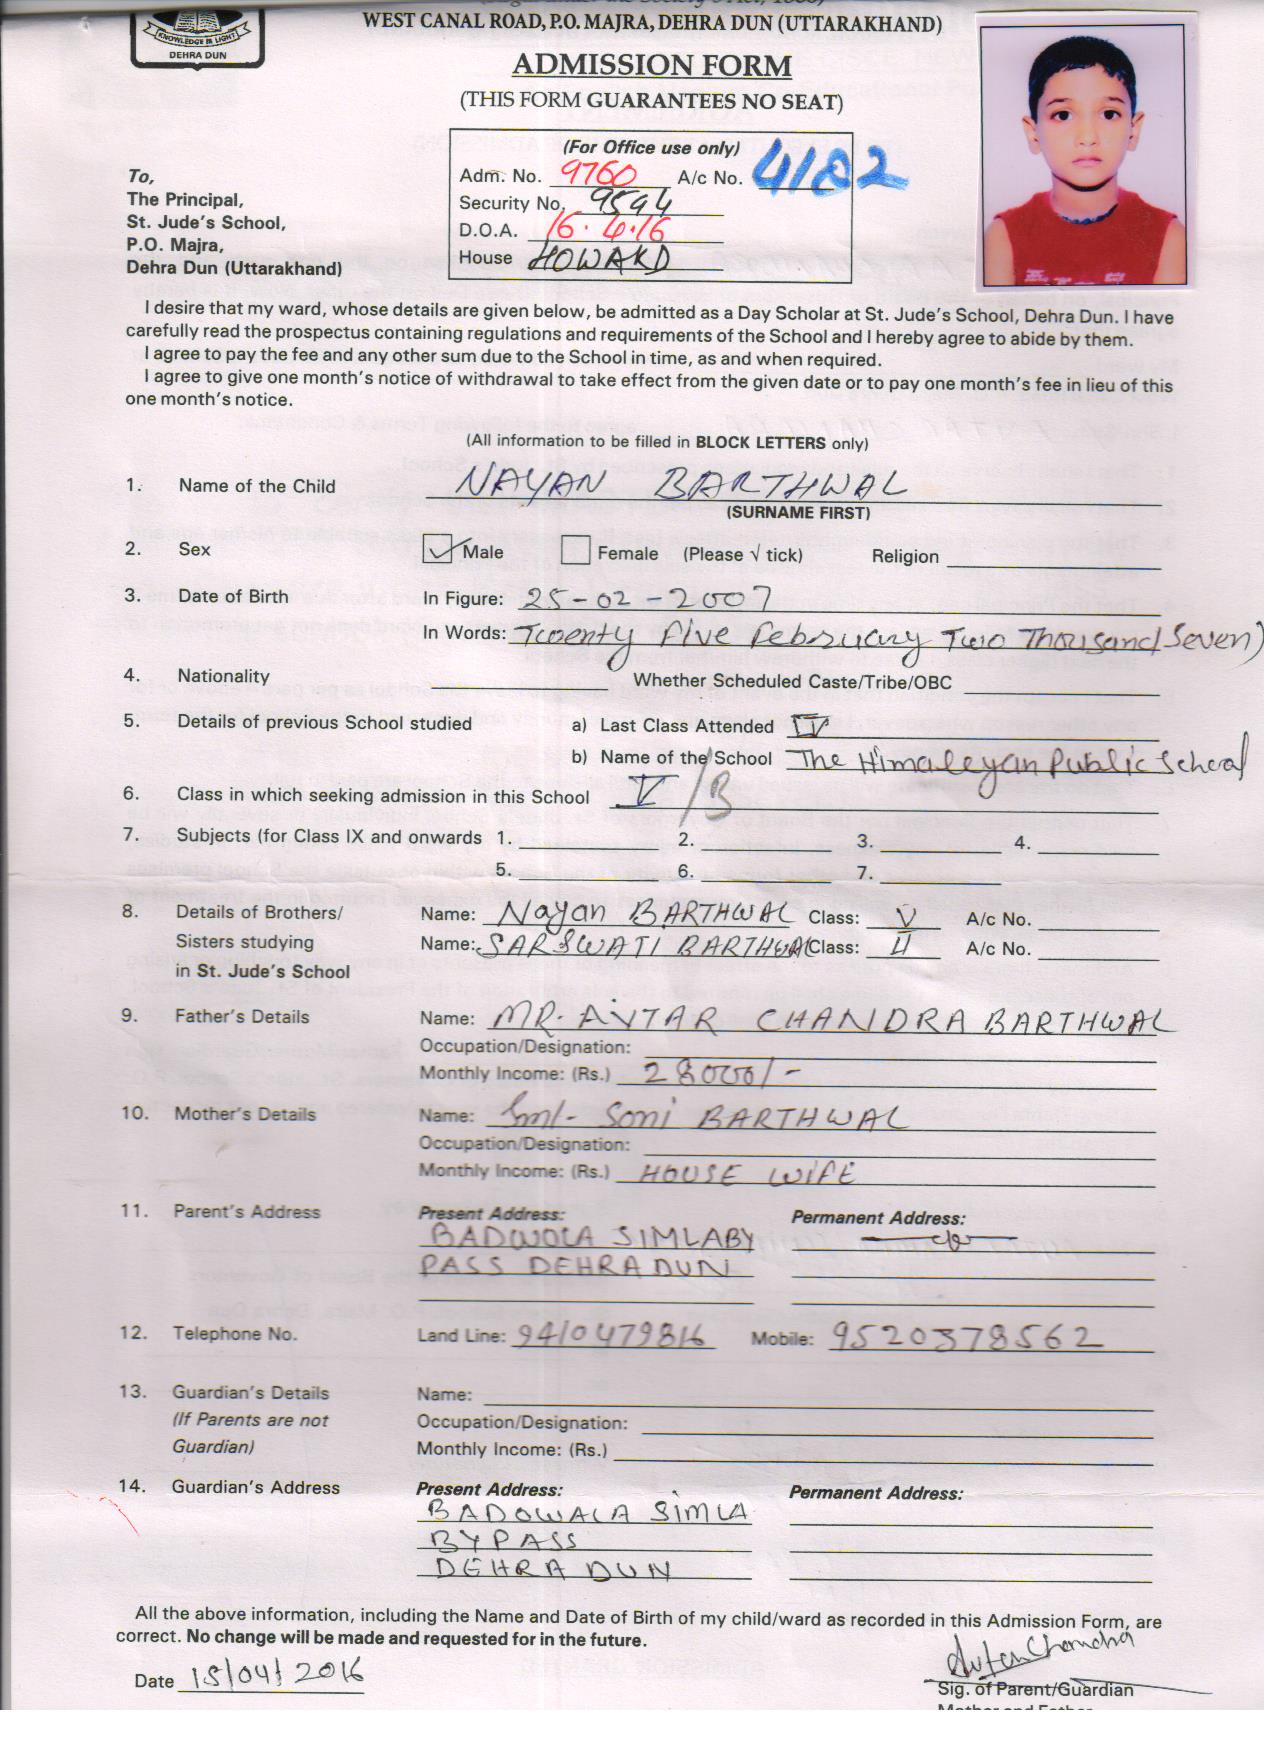 WEST CANAL ROAD, P.O. MAJRA, DEHRA DUN (UTTARAKHAND)
KNOWLEDGE IS LIGHT
DEHRA DUN
ADMISSION FORM
(THIS FORM GUARANTEES NO SEAT)
(For Office use only)
Adm. No. 9760 A/c No. 4182
Security No. 9594
D.O.A. 16.4.16
House HOWARD
To,
The Principal,
St. Jude's School,
P.O. Majra,
Dehra Dun (Uttarakhand)
I desire that my ward, whose details are given below, be admitted as a Day Scholar at St. Jude's School, Dehra Dun. I have
carefully read the prospectus containing regulations and requirements of the School and I hereby agree to abide by them.
I agree to pay the fee and any other sum due to the School in time, as and when required.
I agree to give one month's notice of withdrawal to take effect from the given date or to pay one month's fee in lieu of this
one month's notice.
(All information to be filled in BLOCK LETTERS only)
1. Name of the Child NAYAN BARTHWAL
(SURNAME FIRST)
2. Sex Male Female (Please √ tick) Religion
3. Date of Birth In Figure: 25-02-2007
In Words: Twenty five february Two Thousand Seven)
4. Nationality Whether Scheduled Caste/Tribe/OBC
5. Details of previous School studied a) Last Class Attended IV
b) Name of the School The Himaleyan Public School
6. Class in which seeking admission in this School V/B
7. Subjects (for Class IX and onwards 1. 2. 3. 4.
5. 6. 7.
8. Details of Brothers/ Name: Nayan BARTHWAL Class: V A/c No.
Sisters studying Name: SARSWATI BARTHWAL Class: II A/c No.
in St. Jude's School
9. Father's Details Name: MR. AVTAR CHANDRA BARTHWAL
Occupation/Designation:
Monthly Income: (Rs.) 28000/-
10. Mother's Details Name: Smt- Soni BARTHWAL
Occupation/Designation:
Monthly Income: (Rs.) HOUSE WIFE
11. Parent's Address Present Address: Permanent Address:
BADWOLA SIMLABY
PASS DEHRADUN
12. Telephone No. Land Line: 9410479816 Mobile: 9520378562
13. Guardian's Details Name:
(If Parents are not Occupation/Designation:
Guardian) Monthly Income: (Rs.)
14. Guardian's Address Present Address: Permanent Address:
BADOWALA SIMLA
BYPASS
DEHRA DUN
All the above information, including the Name and Date of Birth of my child/ward as recorded in this Admission Form, are
correct. No change will be made and requested for in the future.
Date 15/04/2016 AvtarChandra
Sig. of Parent/Guardian